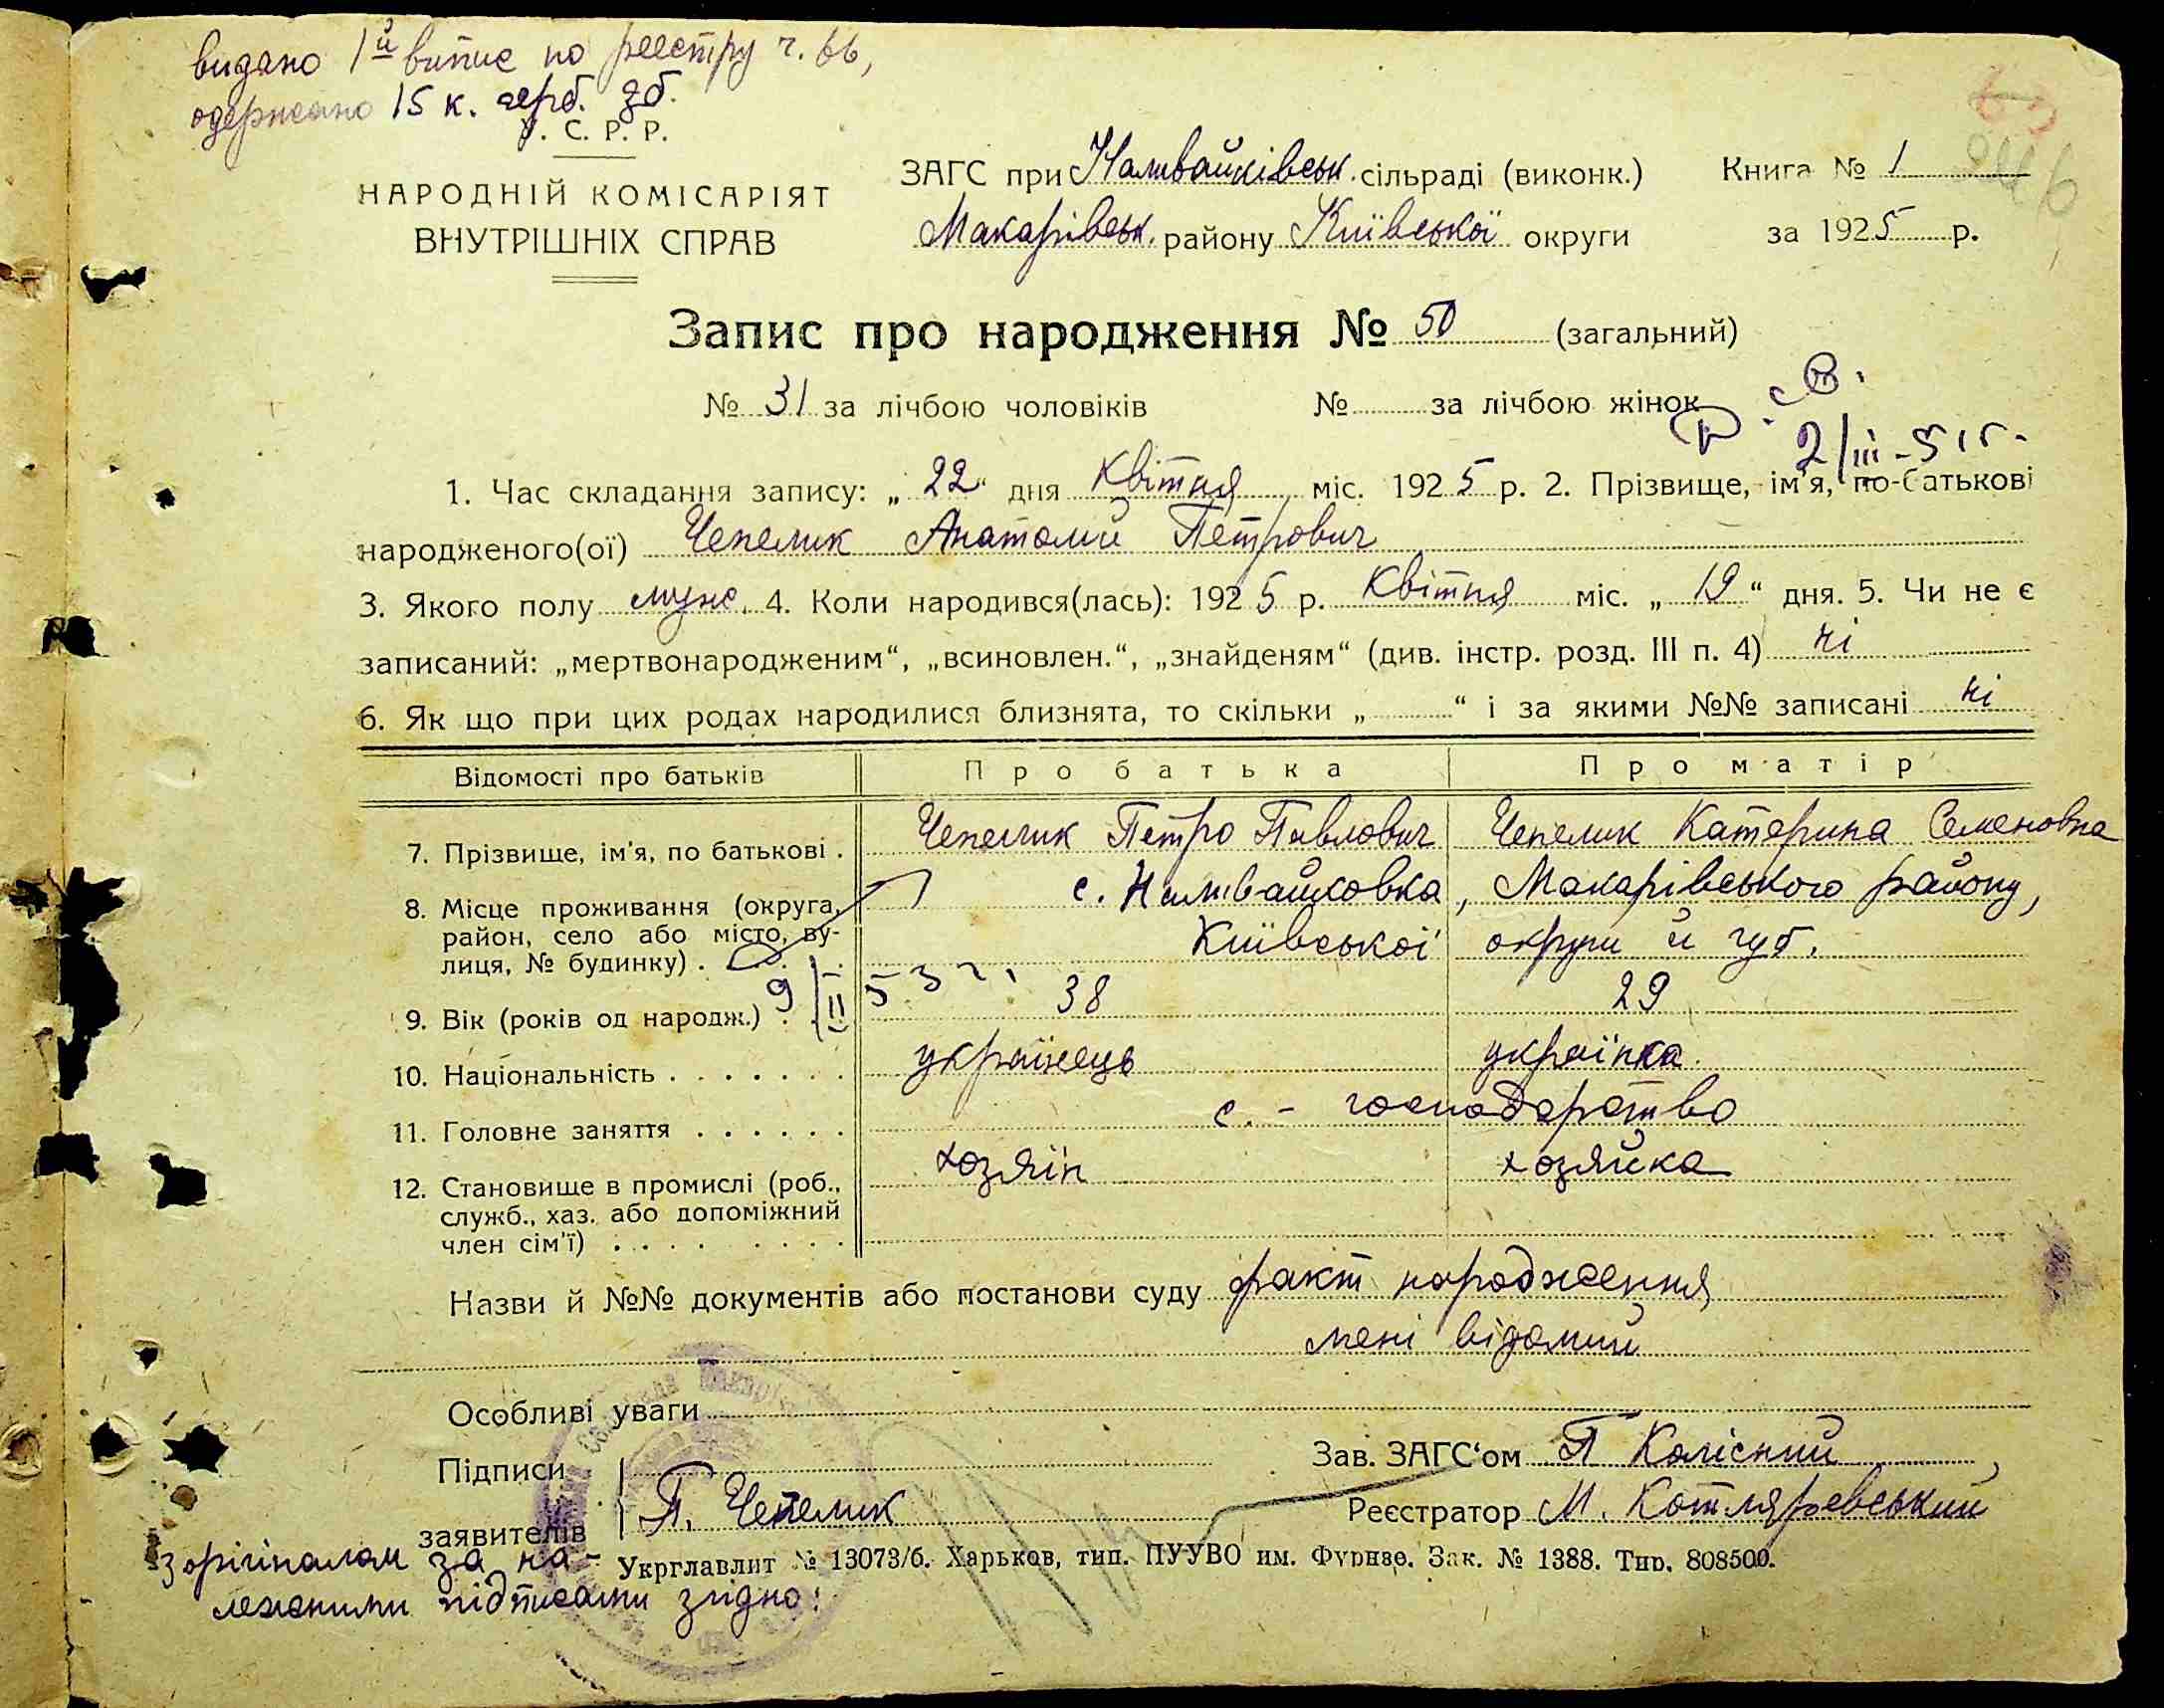 видано 1й витис по реестру ч. 66,
одержано 15 к. герб. зб.
У. С. Р. Р.
НАРОДНІЙ КОМІСАРІЯТ
ВНУТРІШНІХ СПРАВ
ЗАГС при Наливайківськ. сільраді (виконк.)
Макарівськ. району Київської округи
Книга № 1
за 1925 р.
Запис про народження № 50 (загальний)
№ 31 за лічбою чоловіків № за лічбою жінок
2/III-51 г.
1. Час складання запису: „22“ дня Квітня міс. 1925 р. 2. Прізвище, ім'я, по-батькові
народженого(ої) Чепелик Анатолий Петрович
3. Якого полу муж. 4. Коли народився(лась): 1925 р. Квітня міс. „19“ дня. 5. Чи не є
записаний: „мертвонародженим“, „всиновлен.“, „знайденям“ (див. інстр. розд. III п. 4) ні
6. Як що при цих родах народилися близнята, то скільки „ “ і за якими №№ записані ні
Відомості про батьків Про батька Про матір
7. Прізвище, ім'я, по батькові . Чепелик Петро Павлович Чепелик Катерина Семеновна
8. Місце проживання (округа, с. Наливайковка, Макарівського району,
район, село або місто, ву- Київської округи й губ.
лиця, № будинку) .
9/II 53 г.
9. Вік (років од народж.) . 38 29
10. Національність . . . . . . . українець українка
11. Головне заняття . . . . . . с. - господарство
12. Становище в промислі (роб., хозяїн хозяйка
служб., хаз. або допоміжний
член сім'ї) . . . . . . . .
Назви й №№ документів або постанови суду факт народження
мені відомий
Особливі уваги
Підписи
заявителів П. Чепелик
Зав. ЗАГС'ом П Колісний
Реєстратор М. Котляревський
Укрглавлит № 13073/б. Харьков, тип. ПУУВО им. Фрунзе. Зак. № 1388. Тир. 808500.
з оригіналом за на-
лежними підписами згідно: